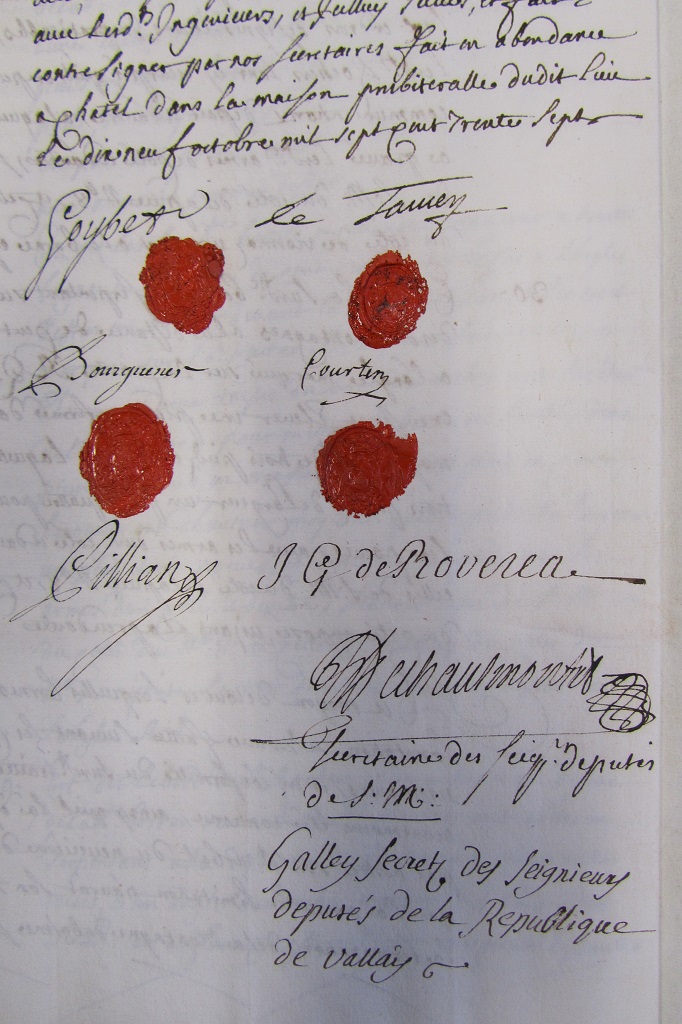 avec lesd.ts Ingenieurs, et fait
contresigner par nos secretaires fait en abondance
a Chatel dans la maison presbiteralle dudit lieu
le dix neuf octobre mil sept cent trente sept
Goybet le
Bourguenes Courten
Pillian J G de Roverea
Dechaulmontet
Secretaire des Seig.rs deputés
de S: M:
Galley Secret. des Seignieurs
deputés de la Republique
de vallay